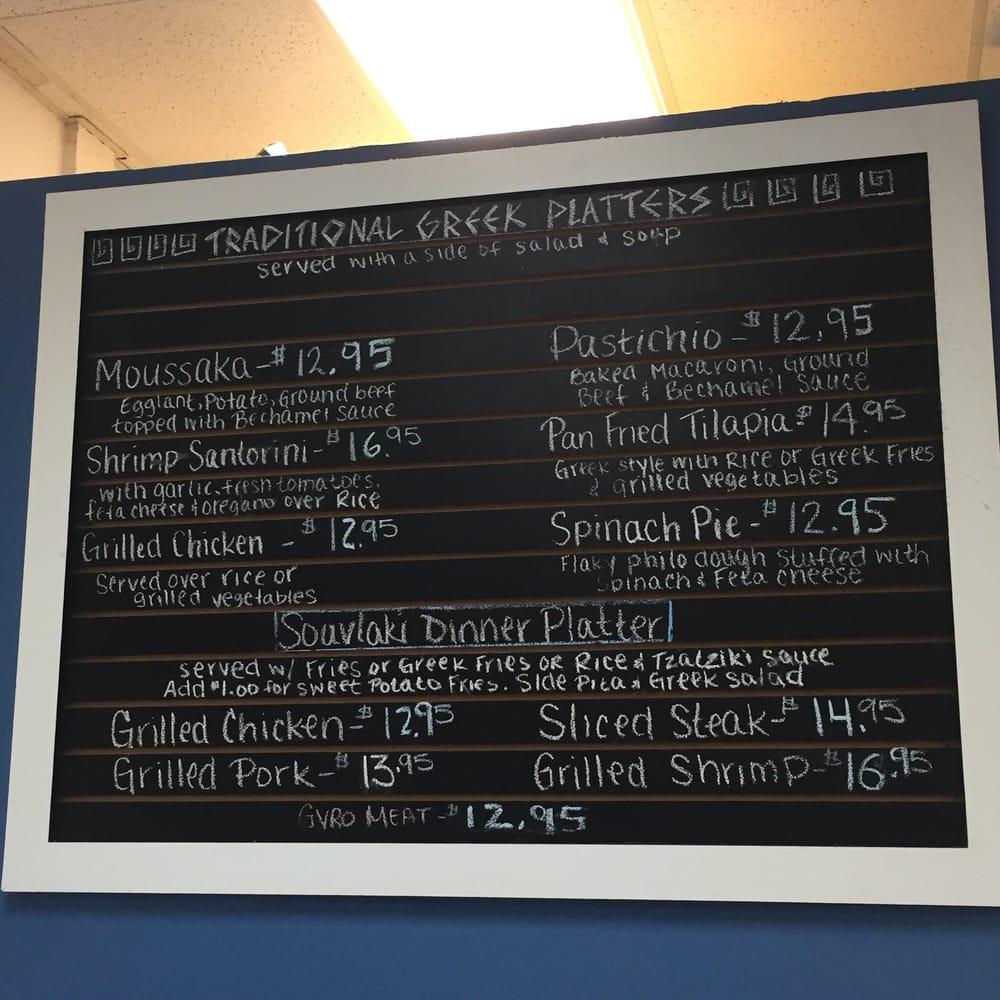 TRADITIONAL GREEK PLATTERS
served with a side of salad & soup
Moussaka - $12.95
Egglant, Potato, Ground beef
topped with Bechamel Sauce
Shrimp Santorini - $16.95
with garlic, fresh tomatoes,
feta cheese & oregano over Rice
Grilled Chicken - $12.95
Served over rice or
grilled vegetables
Pastichio - $12.95
Baked Macaroni, Ground
Beef & Bechamel Sauce
Pan Fried Tilapia - $14.95
Greek style with Rice or Greek Fries
& grilled vegetables
Spinach Pie - $12.95
Flaky philo dough stuffed with
Spinach & Feta cheese
Souvlaki Dinner Platter
served w/ Fries or Greek Fries or Rice & Tzatziki sauce
Add $1.00 for sweet Potato Fries. Side Pita & Greek salad
Grilled Chicken - $12.95
Sliced Steak - $14.95
Grilled Pork - $13.95
Grilled Shrimp - $16.95
GYRO MEAT - $12.95